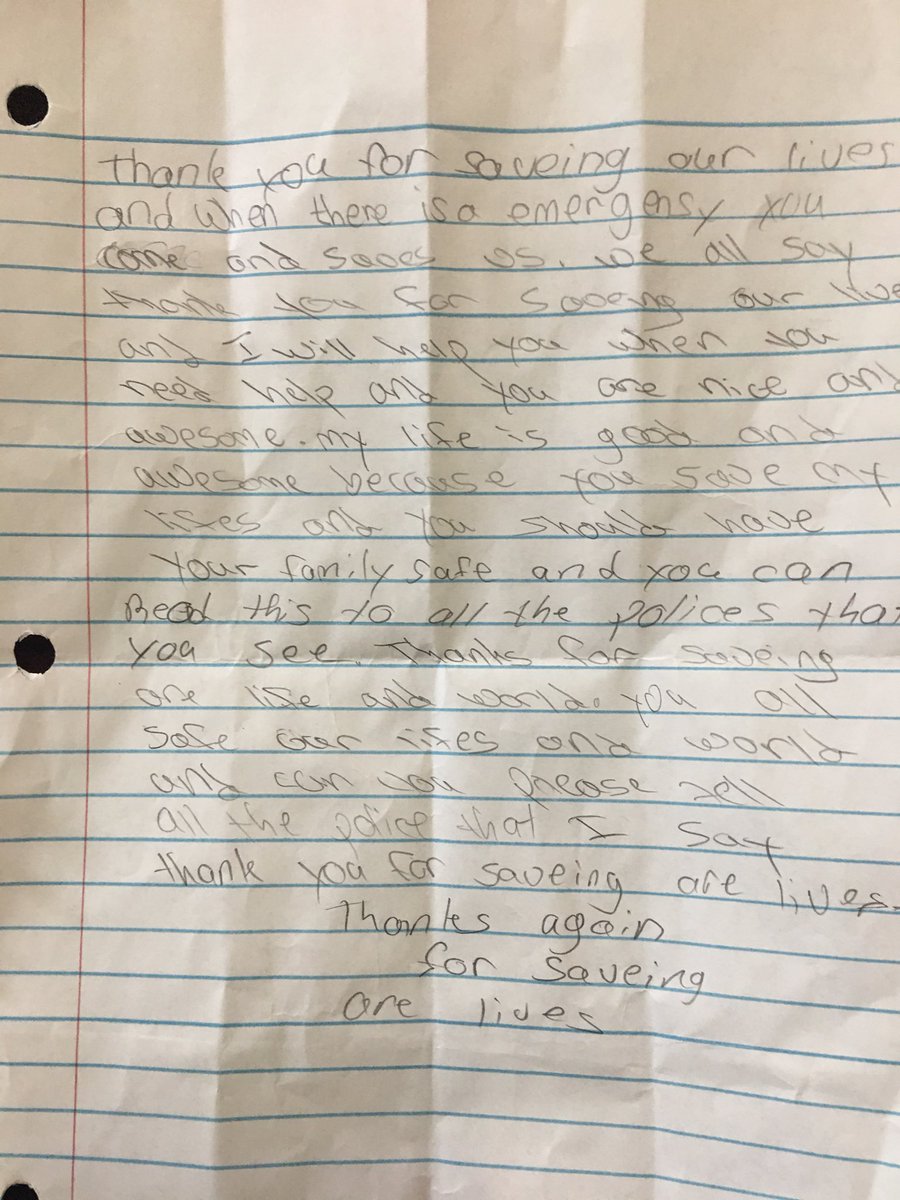 thank you for saveing our lives
and when there is a emergensy you
come and saves us. we all say
thank you for saveing our live
and I will help you when you
need help and you are nice and
awesome. my life is good and
awesome because you save my
lifes and you should have
your family safe and you can
Read this to all the polices that
you see. Thanks for saveing
are life and world. you all
safe our lifes and world
and can you please tell
all the police that I say
thank you for saveing are lives.
Thanks again
for saveing
are lives